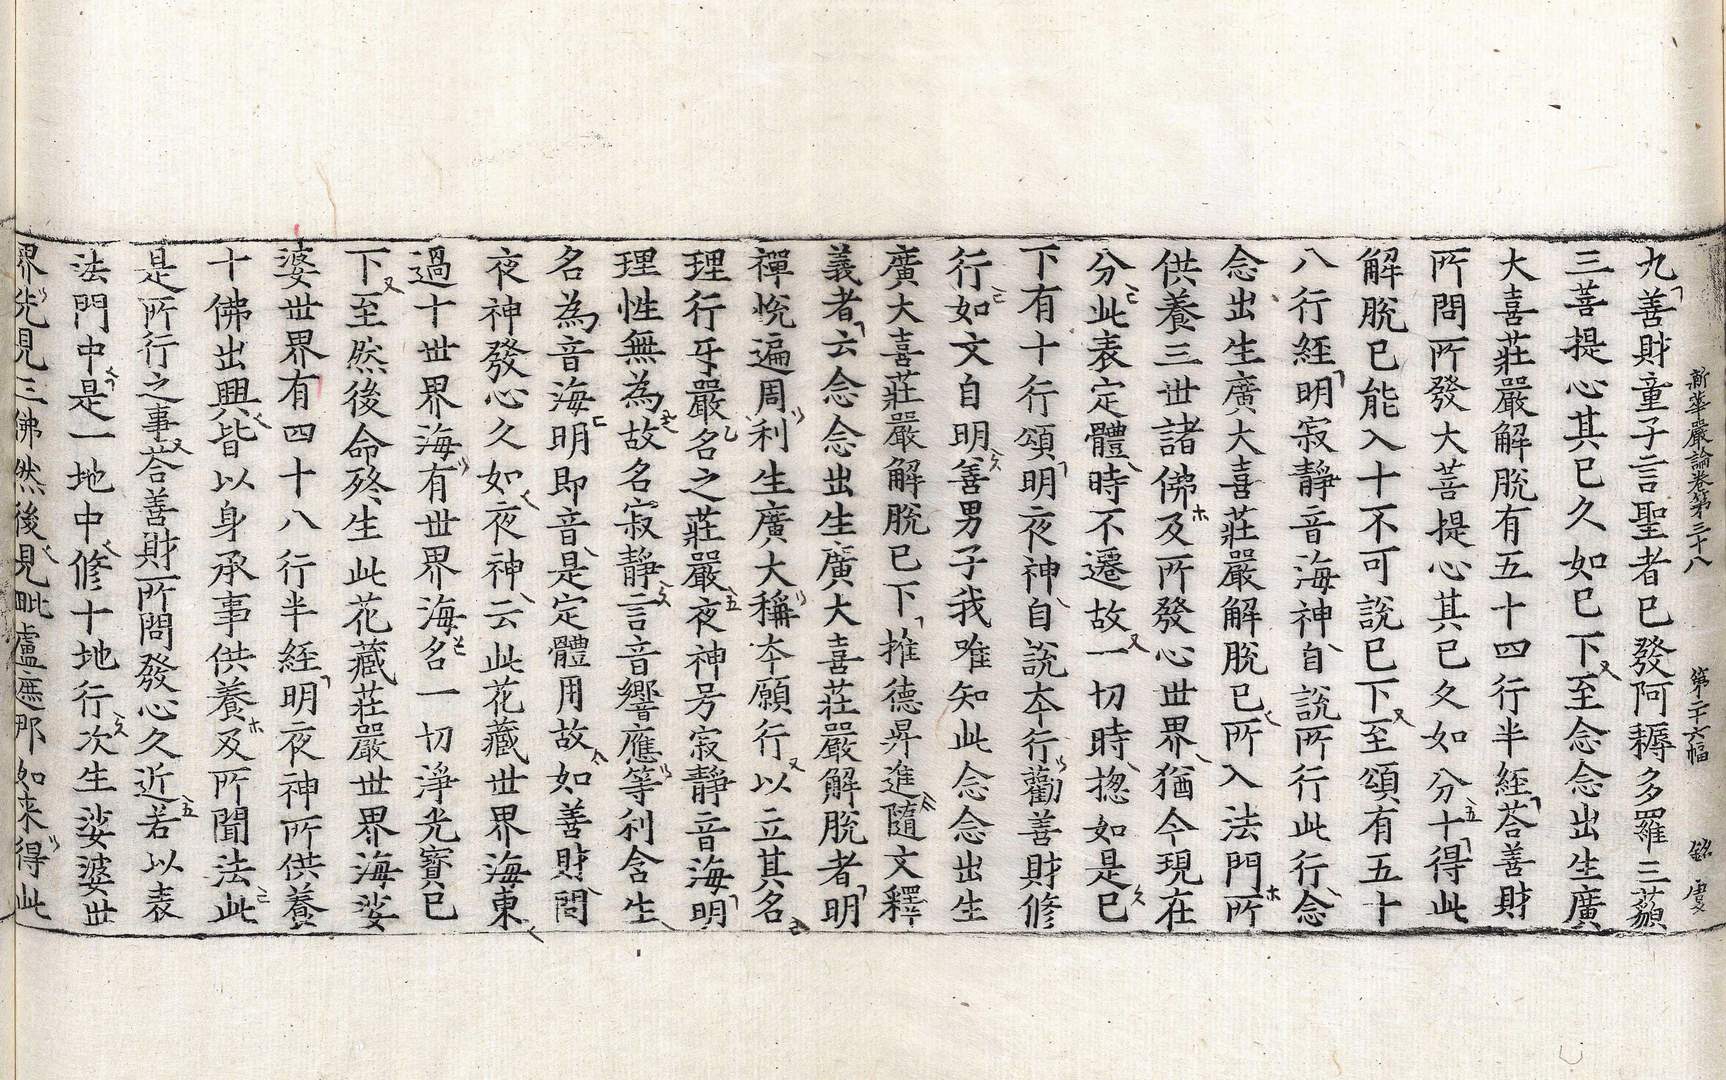 新華嚴論卷第三十八　第二十六幅　銘　虔
九善財童子言聖者已發阿耨多羅三藐
三菩提心其已久如已下至念念出生廣
大喜莊嚴解脫有五十四行半經荅善財
所問所發大菩提心其已久如分十得此
解脫已能入十不可說已下至頌有五十
八行經明寂靜音海神自說所行此行念
念出生廣大喜莊嚴解脫已所入法門所
供養三世諸佛及所發心世界猶今現在
分此表定體時不遷故一切時揔如是已
下有十行頌明夜神自說本行勸善財修
行如文自明善男子我唯知此念念出生
廣大喜莊嚴解脫已下推德昇進隨文釋
義者云念念出生廣大喜莊嚴解脫者明
禪悅遍周利生廣大稱本願行以立其名
理行牙嚴名之莊嚴夜神号寂靜音海明
理性無為故名寂靜言音響應等利含生
名為音海明即音是定體用故如善財問
夜神發心久如夜神云此花藏世界海東
過十世界海有世界海名一切淨光寶已
下至然後命終生此花藏莊嚴世界海娑
婆世界有四十八行半經明夜神所供養
十佛出興皆以身承事供養及所聞法此
是所行之事荅善財所問發心久近若以表
法門中是一地中修十地行次生娑婆世
界先見三佛然後見毗盧遮那如来得此